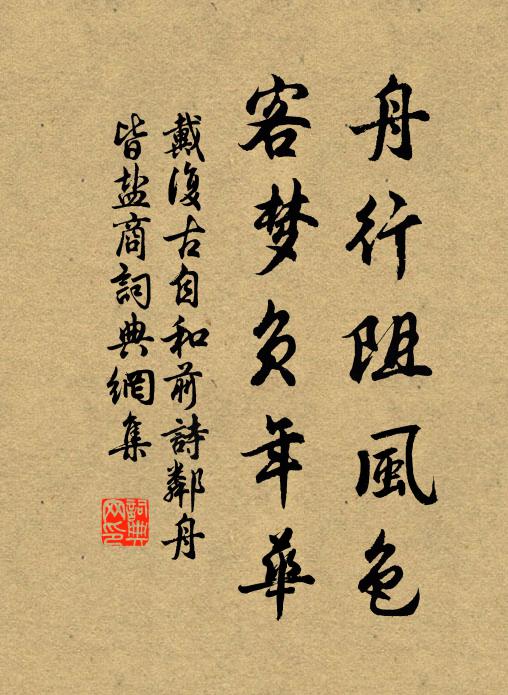 舟行阻風色
客梦负年華
戴復古自和前詩鄰舟
皆盐商詞典網集
詞典
网印